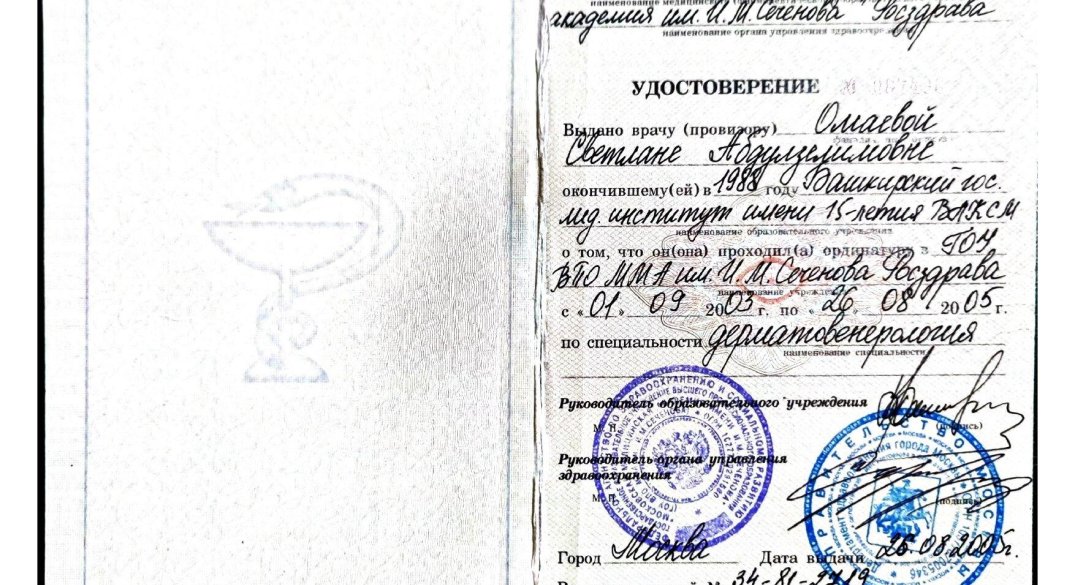 академия им. И.М. Сеченова Росздрава
наименование органа управления здравоохранением
УДОСТОВЕРЕНИЕ
Выдано врачу (провизору) Омаевой
Светлане Абдулзелимовне
окончившему(ей) в 1988 году Башкирский гос.
мед. институт имени 15-летия ВЛКСМ
наименование образовательного учреждения
о том, что он(она) проходил(а) ординатуру в ГОУ
ВПО ММА им. И.М. Сеченова Росздрава
наименование учреждения
с «01» 09 2003 г. по «26» 08 2005 г.
по специальности дерматовенерология
наименование специальности
Руководитель образовательного учреждения
(подпись)
М. П.
Руководитель органа управления
здравоохранения
М. П.
подпись
Город Москва Дата выдачи 26.08.2005г.
34-81-2719